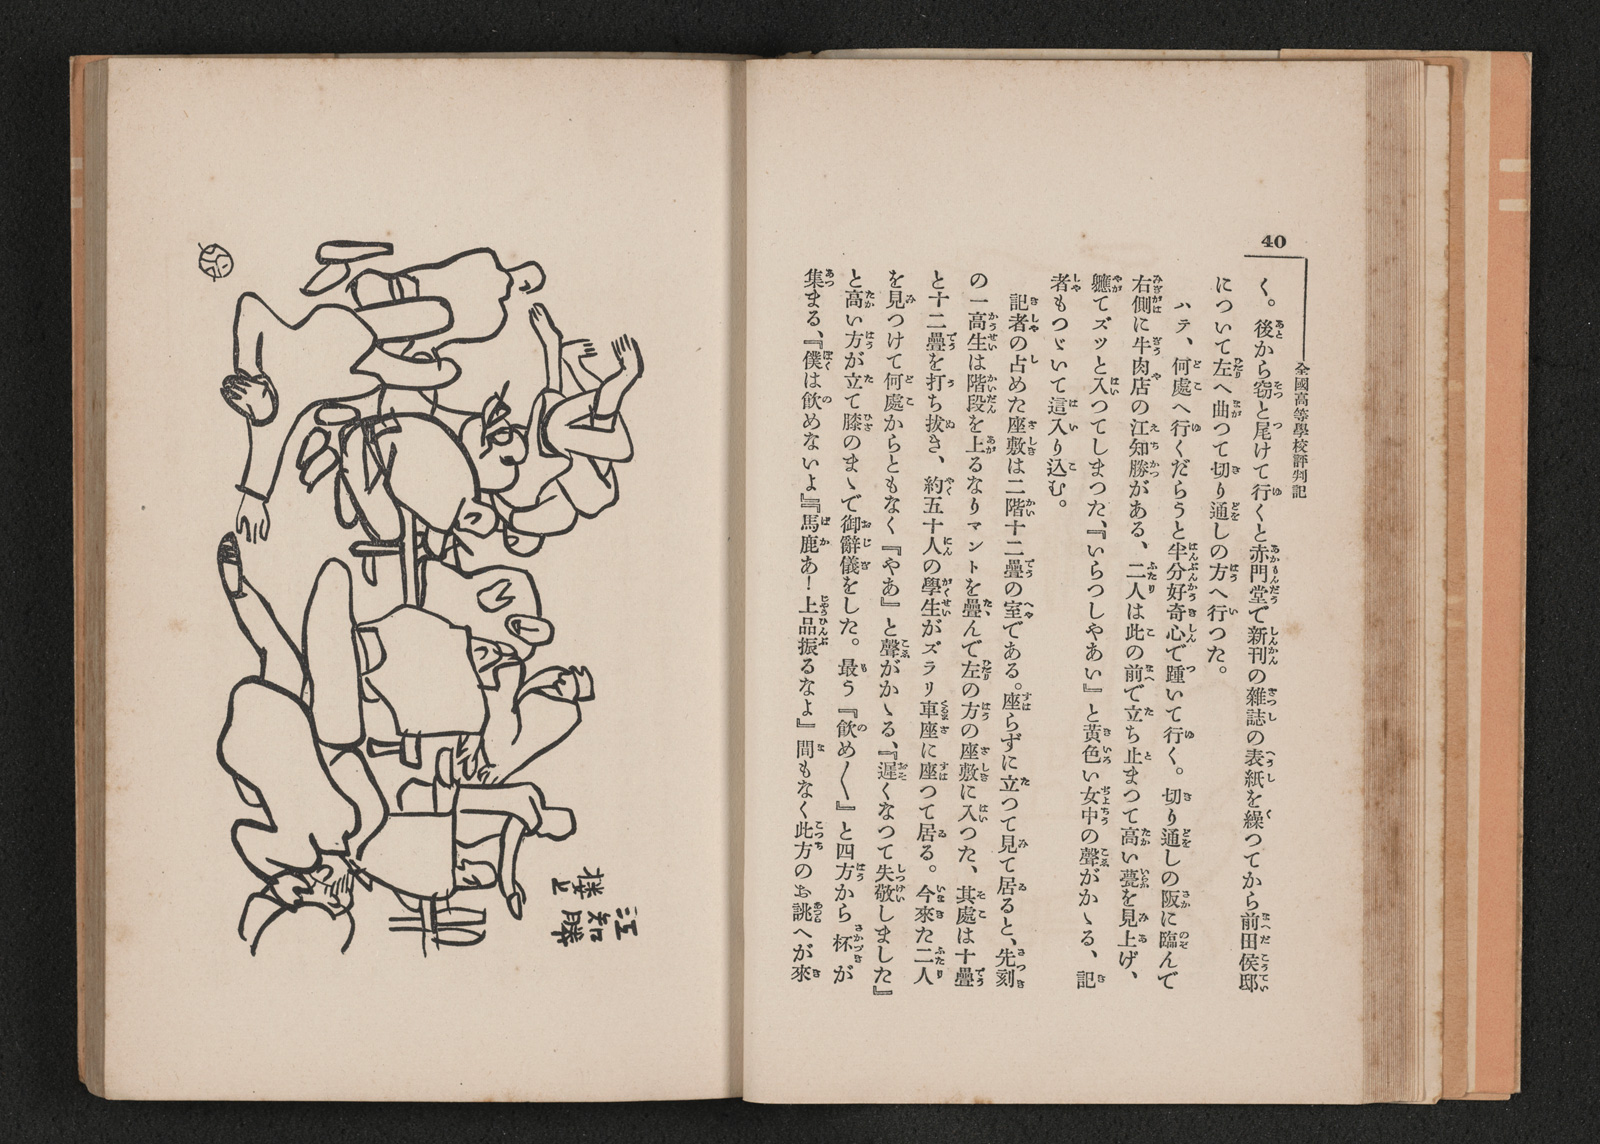 40
全國高等學校評判記
く。後から窃と尾けて行くと赤門堂で新刊の雜誌の表紙を繰つてから前田侯邸
について左へ曲つて切り通しの方へ行つた。
ハテ、何處へ行くだらうと半分好奇心で踵いて行く。切り通しの阪に臨んで
右側に牛肉店の江知勝がある、二人は此の前で立ち止まつて高い甍を見上げ、
軈てズッと入つてしまつた、『いらつしやあい』と黄色い女中の聲がかゝる、記
者もつゞいて這入り込む。
記者の占めた座敷は二階十二疊の室である。座らずに立つて見て居ると、先刻
の一高生は階段を上るなりマントを疊んで左の方の座敷に入つた、其處は十疊
と十二疊を打ち拔き、約五十人の學生がズラリ車座に座つて居る。今來た二人
を見つけて何處からともなく『やあ』と聲がかゝる、『遲くなつて失敬しました』
と高い方が立て膝のまゝで御辭儀をした。最う『飮め〱』と四方から杯が
集まる、『僕は飮めないよ』『馬鹿あ！上品振るなよ』間もなく此方のお誂へが來
江知勝
樓上